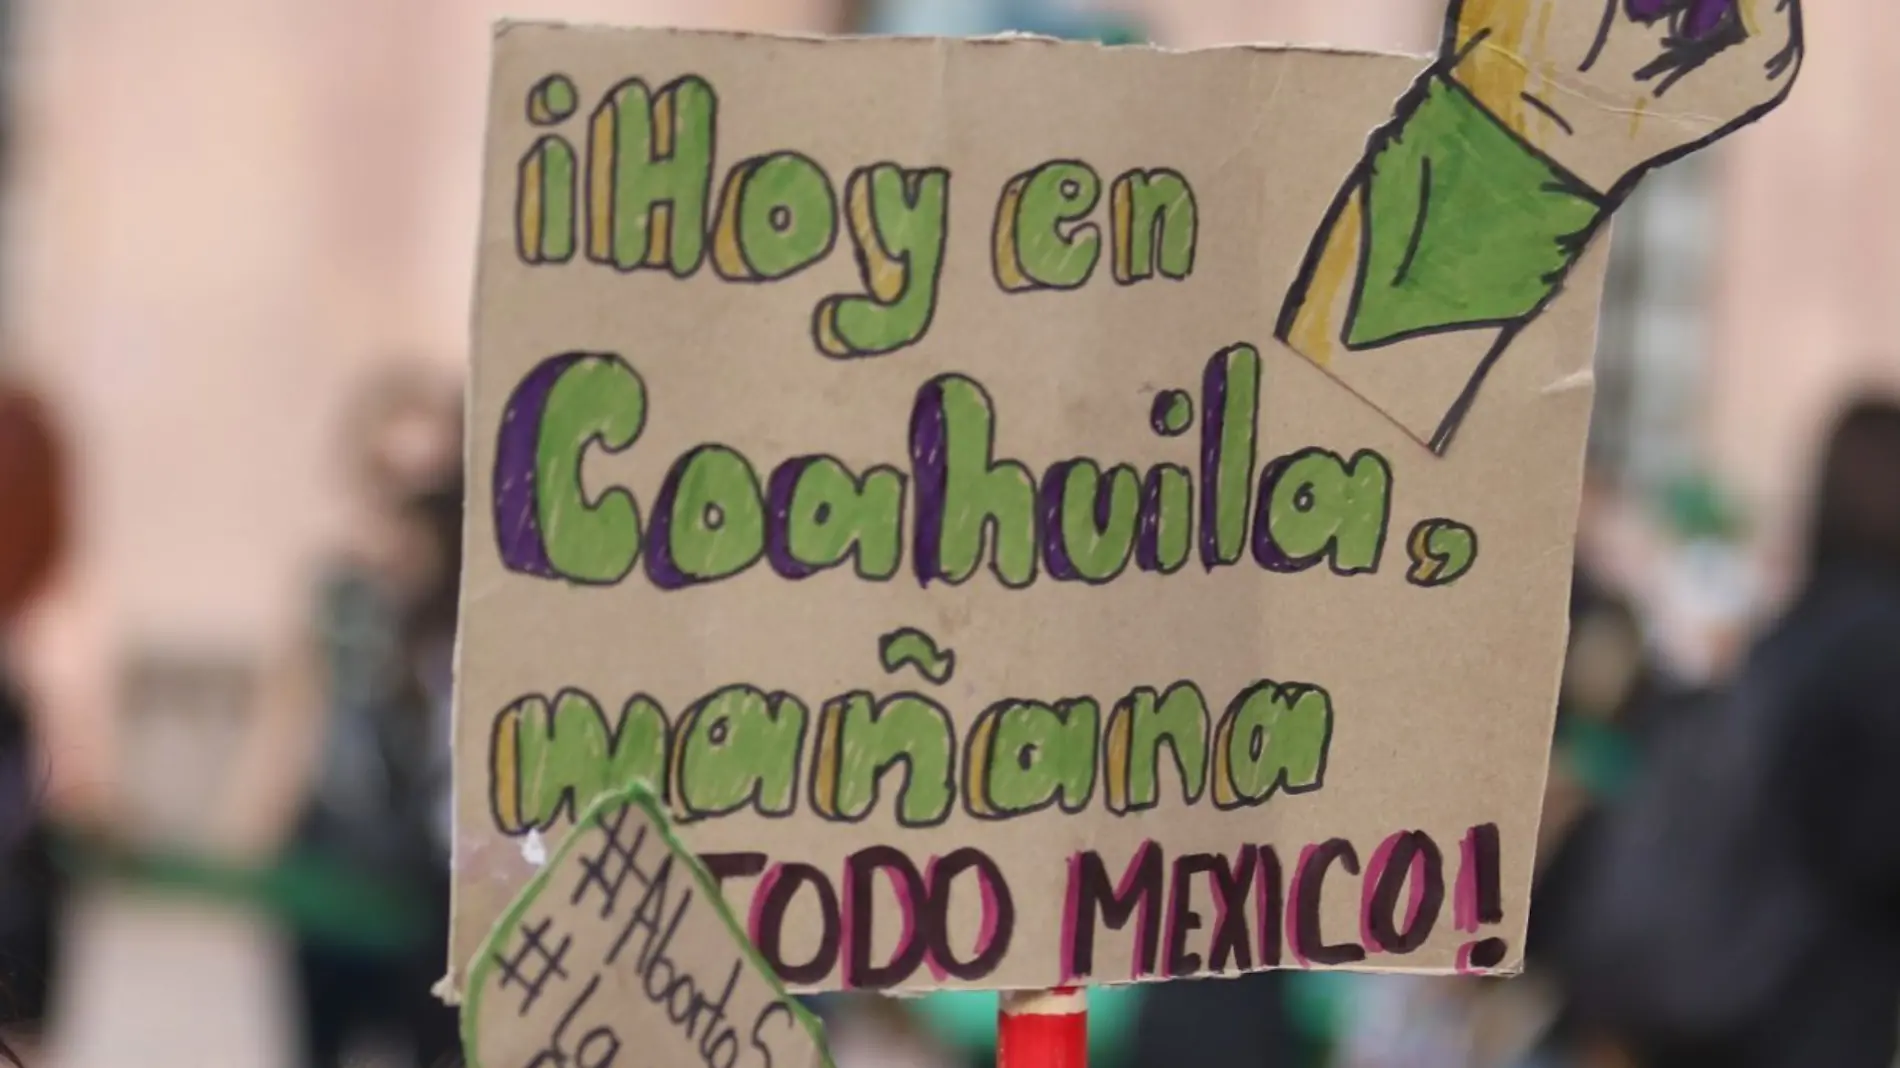 ¡Hoy en
Coahuila,
mañana
TODO MEXICO!
#Aborto
#La